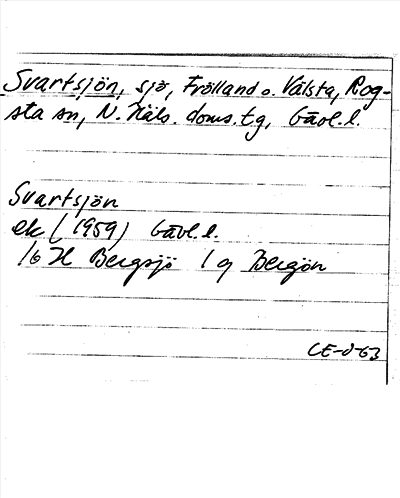 Svartsjön, sjö, Frölland o. Välsta, Rog-
sta sn, N. Häls. doms.tg, Gävl.l.
Svartsjön
ek (1959) Gävl.l.
16 H Bergsjö 1g Bergön
CE-8-63